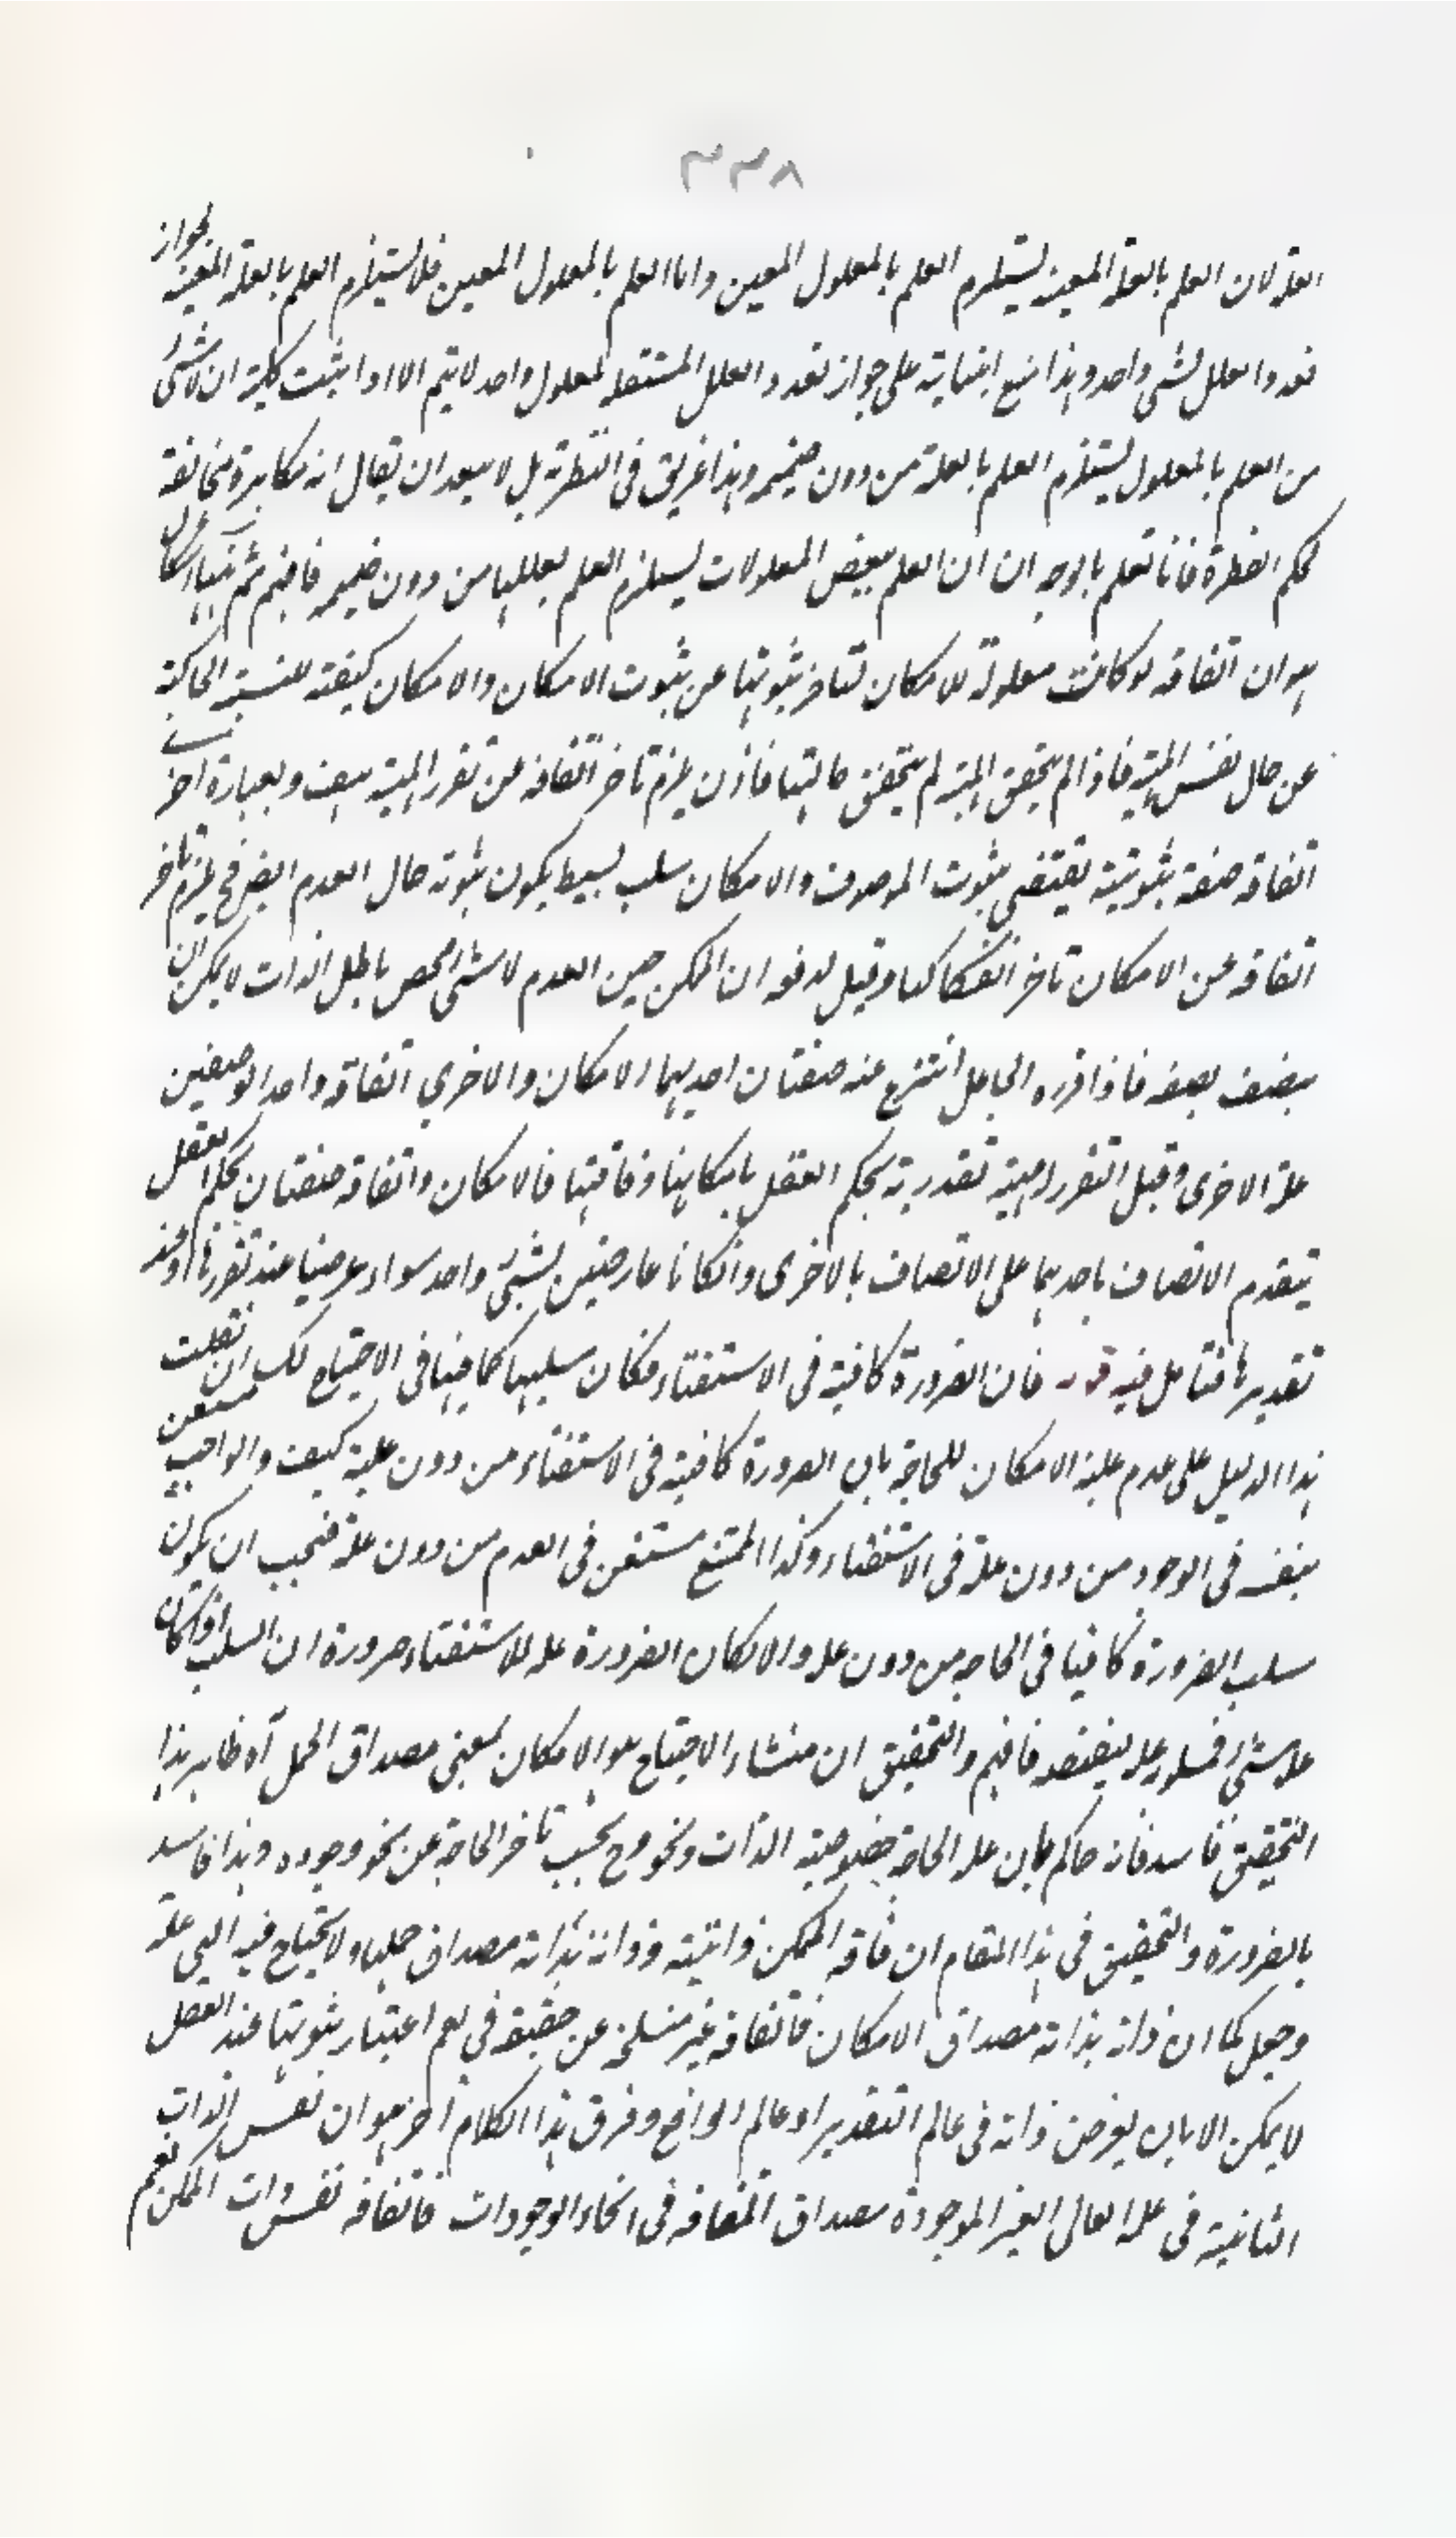 ٣٣٨
العلة لان العلم بالعلة المعينة يستلزم العلم بالمعلول المعين واما العلم بالمعلول المعين فلا يستلزم العلم بالعلة المعينة لجواز
تعدد العلل لشى واحد وهذا مع ابتنايه على جواز تعدد العلل المستقلة لمعلول واحد لا يتم الا اذا يثبت كلية ان لا شى
من العلم بالمعلول يستلزم العلم بالعلة من دون ضميمة وهذا غريق فى النظرية بل لا يبعد ان يقال انه مكابرة مخالفة
لحكم الفطرة فانا نعلم بالوجدان ان العلم ببعض المعلولات يستلزم العلم بعللها من دون ضميمة فافهم ثم
هو ان الفاقة لو كانت معلولة للامكان لتاخر ثبوتها عن ثبوت الامكان والامكان كيفية للنسبة الحاكية
عن حال نفس المهية فاذا لم يتحقق المهية لم يتحقق حالتها فاذن يلزم تاخر الفاقة عن تقرر المهية هف وبعبارة اخرى
الفاقة صفة ثبوتية يقتضى ثبوت الموصوف والامكان سلب بسيط يكون ثبوته حال العدم ايض فح يلزم تاخر
الفاقة عن الامكان تاخرا انفكاكيا وقيل لدفعه ان الممكن حين العدم لا شى محض باطل الذات لا يمكن ان
يتصف بصفة فاذا قرره الجاعل انتزع عنه صفتان احديهما الامكان والاخرى الفاقة واحد الوصفين
علة الاخرى وقبل التقرر المهية تقديرية يحكم العقل بامكانها وفاقتها فالامكان والفاقة صفتان يحكم العقل
بتقدم الاتصاف باحديهما على الاتصاف بالاخرى وان كانا عارضين لشى واحد سواء عرضيا عند تقررها او عند
تقديرها فتامل فيه قوله فان الضرورة كافية فى الاستغناء فكان سلبها كافيا فى الاحتياج لك ان تقلب
هذا الدليل على عدم علية الامكان للحاجة بان الضرورة كافية فى الاستغناء من دون علية كيف والواجب مستغن
بنفسه فى الوجود من دون علة فى الاستغناء وكذا الممتنع مستغن فى العدم من دون علة فيجب ان يكون
سلب الضرورة كافيا فى الحاجة من دون علة والا لكان الضرورة علة للاستغناء ضرورة ان السلب اذا كان
علة شى فمسلوبه علة لنقيضه فافهم والتحقيق ان منشاء الاحتياج هو الامكان بمعنى مصداق الحمل آه ظاهر هذا
التحقيق فاسد فانه حاكم بان علة الحاجة خصوصية الذات ونحو وح يجب تاخر الحاجة عن نحو وجوده وهذا فاسد
بالضرورة والتحقيق فى هذا المقام ان فاقة الممكن ذاتية وذاته بذاته مصداق حملها ولا يحتاج فيه الى علة
وجعل كما ان ذاته بذاته مصداق الامكان فالفاقة غير منسلخة عن حقيقة فى نعم اعتبار ثبوتها عند العقل
لا يمكن الا بان يفرض ذاته فى عالم التقدير او عالم الواقع وفرق هذا الكلام آخر هو ان نفس الذات
الثانية فى علة العالى الغير الموجودة مصداق الفاقة فى انحاء الوجودات فالفاقة نفس ذات الممكن نعم